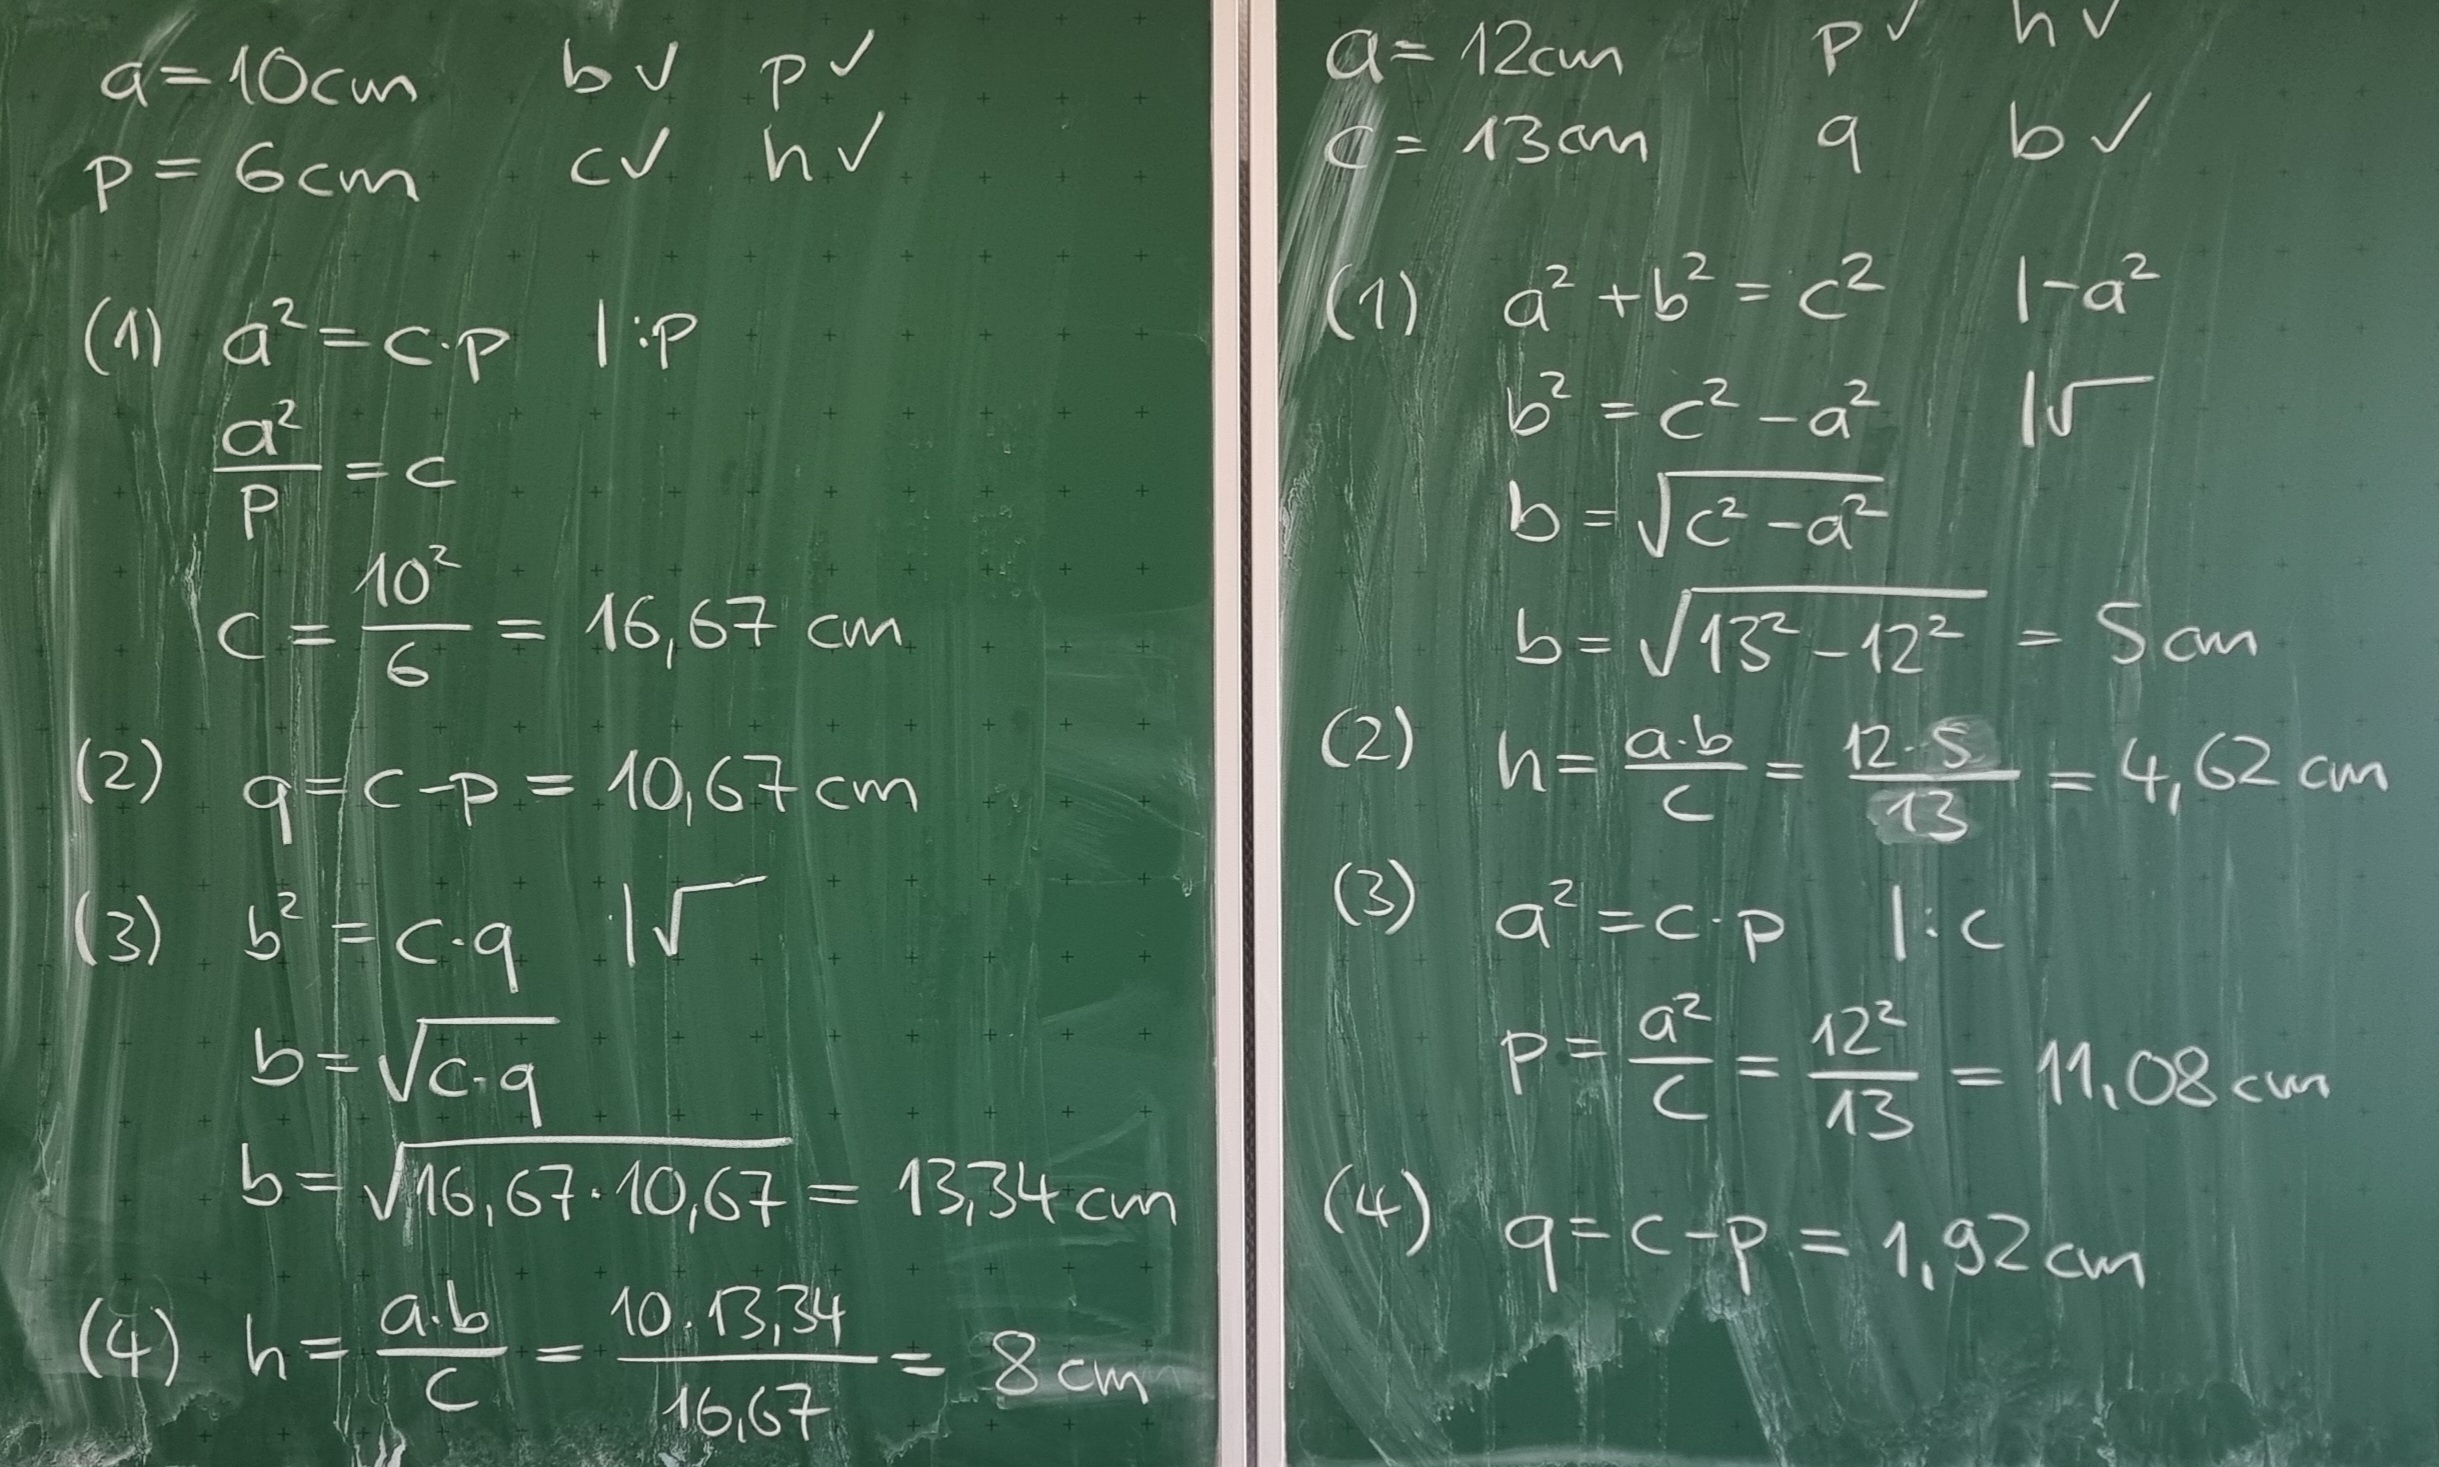 a = 10cm b ✓ p ✓
p = 6cm c ✓ h ✓
(1) a² = c·p |:p
a²/p = c
c = 10²/6 = 16,67 cm
(2) q = c - p = 10,67 cm
(3) b² = c·q |√
b = √(c·q)
b = √(16,67·10,67) = 13,34 cm
(4) h = a·b/c = 10·13,34/16,67 = 8 cm
a = 12cm p ✓ h ✓
c = 13cm q b ✓
(1) a² + b² = c² |-a²
b² = c² - a² |√
b = √(c² - a²)
b = √(13² - 12²) = 5 cm
(2) h = a·b/c = 12·5/13 = 4,62 cm
(3) a² = c·p |:c
p = a²/c = 12²/13 = 11,08 cm
(4) q = c - p = 1,92 cm